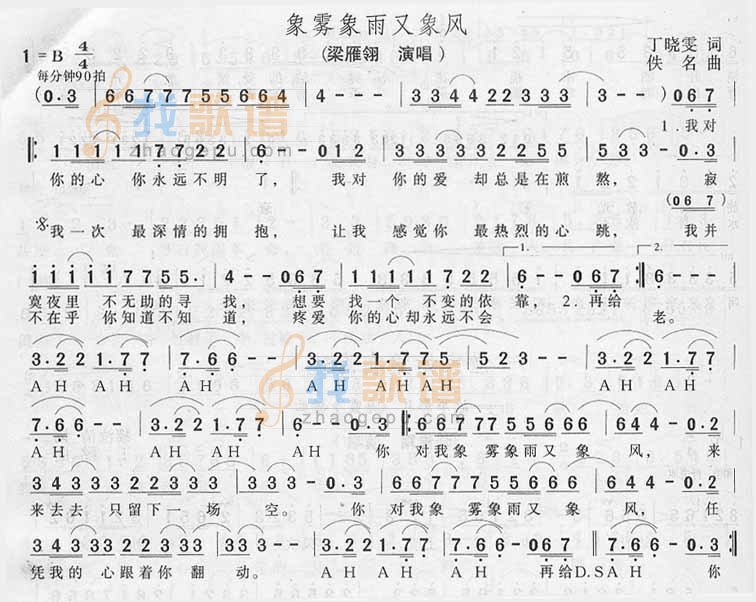 象雾象雨又象风
1=B 4/4 (梁雁翎 演唱) 丁晓雯 词
每分钟90拍 佚名 曲
(0.3 | 667775 5664 | 4--- | 3344 22333 | 3--) 067 |
1.我对
111177722 | 6--012 | 333333 2255 | 35-- 0.3 |
你的心 你永远不明 了, 我对 你的爱 却总是在煎 熬, 寂
(06 7)
我一次 最深情的拥 抱, 让我 感觉你 最热烈的心 跳, 我并
1. 2.
iiiii7755. | 4--067 | 11111722 | 6--067 :| 6--
寞夜里 不无助的寻 找, 想要 找一个 不变的依 靠, 2.再给
不在乎 你知道不知 道, 疼爱 你的心却永远不会 老。
3.22 1.77 | 7.66-- | 3.22 1.775 | 523-- | 3.22 1.77
AH AH AH AH AH AH AH AH
7.66-- | 3.22 1.77 | 6--0.3 |: 667775 5666 | 644-0.2
AH AH AH 你 对我象 雾象雨又象 风, 来
343433 22333 | 3--0.3 | 667775 5666 | 644-0.2
来去去 只留下一场 空。 你 对我象 雾象雨又象 风, 任
343433 22333 | 333-- | 3.22 1.77 | 7.66-067 | 7.66-0.3 :|
凭我的 心跟着你 翻 动。 AH AH AH 再给D.S AH 你
找歌谱
zhaogepu.com
找歌谱
zhaogepu.com